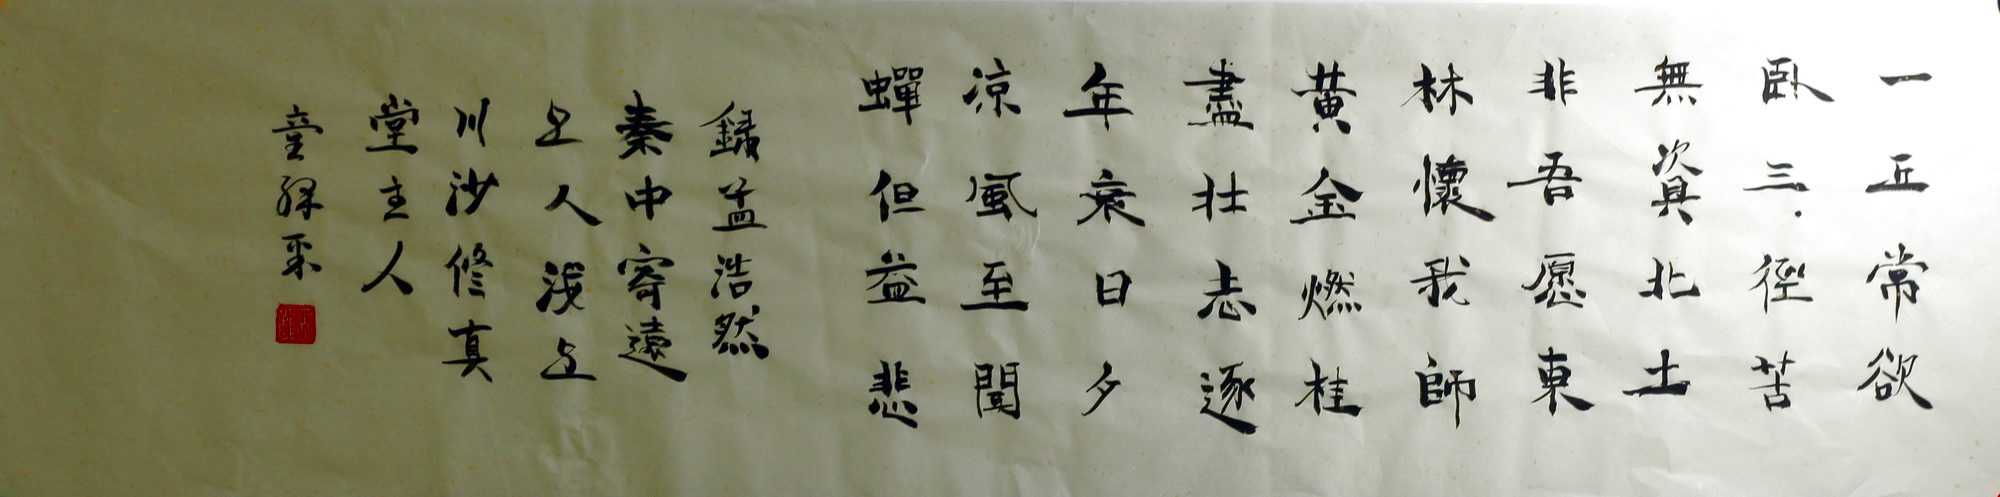 一丘常欲
臥三徑苦
無資北土
非吾愿東
林懷我師
黃金燃桂
盡壯志逐
年衰日夕
涼風至聞
蟬但益悲
錄孟浩然
秦中寄遠
上人
川沙修真
堂主人